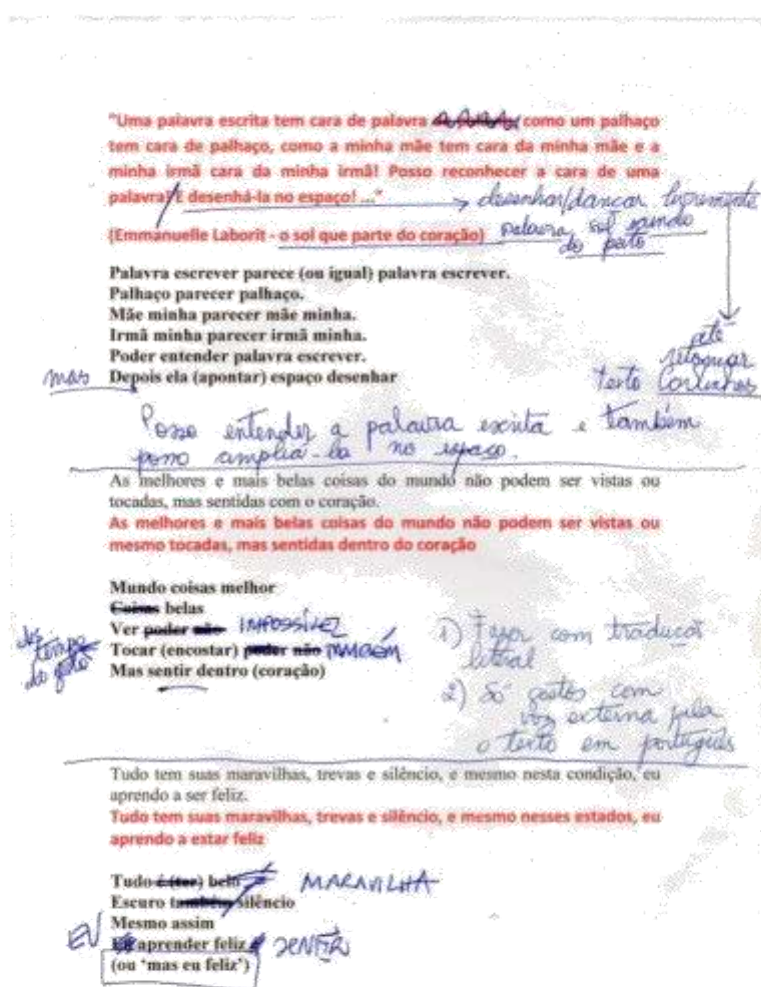 "Uma palavra escrita tem cara de palavra como um palhaço
tem cara de palhaço, como a minha mãe tem cara da minha mãe e a
minha irmã cara da minha irmã! Posso reconhecer a cara de uma
palavra! E desenhá-la no espaço! ..."
desenhar/dançar
(Emmanuelle Laborit - o sol que parte do coração) palavra sol
do
Palavra escrever parece (ou igual) palavra escrever.
Palhaço parecer palhaço.
Mãe minha parecer mãe minha.
Irmã minha parecer irmã minha.
Poder entender palavra escrever.
mas Depois ela (apontar) espaço desenhar
até
retomar
texto
Posso entender a palavra escrita e também
posso ampliá-la no espaço.
As melhores e mais belas coisas do mundo não podem ser vistas ou
tocadas, mas sentidas com o coração.
As melhores e mais belas coisas do mundo não podem ser vistas ou
mesmo tocadas, mas sentidas dentro do coração
Mundo coisas melhor
Coisas belas
Ver poder não IMPOSSÍVEL
Tocar (encostar) poder não TAMBÉM
Mas sentir dentro (coração)
tempo
do
1) Fazer com tradução
literal
2) Só gestos com
voz externa
o texto em português
Tudo tem suas maravilhas, trevas e silêncio, e mesmo nesta condição, eu
aprendo a ser feliz.
Tudo tem suas maravilhas, trevas e silêncio, e mesmo nesses estados, eu
aprendo a estar feliz
Tudo é (ter) belo MARAVILHA
Escuro também silêncio
Mesmo assim
EU aprender feliz SENTIR
(ou 'mas eu feliz')